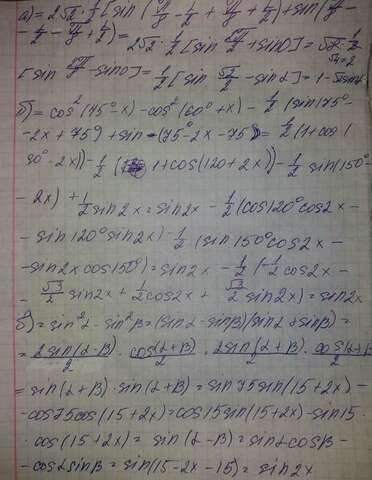 а) = 2√2 · 1/2 [sin (π/8 - α/2 + π/8 + α/2) + sin (π/8 -
- α/2 - π/8 + α/2) = 2√2 · 1/2 [sin 2π/8 + sin 0] =
[sin - sin 0] = 1/2 [sin - sin α] =
б) = cos² (45° - x) - cos² (60° + x) - 1/2 (sin (75° -
- 2x + 75°) + sin (75° - 2x - 75°) = 1/2 (1 + cos (
90° - 2x)) - 1/2 (1 + cos (120 + 2x)) - 1/2 sin (150° -
- 2x) + 1/2 sin 2x = sin 2x - 1/2 (cos 120° cos 2x -
- sin 120° sin 2x) - 1/2 (sin 150° cos 2x -
- sin 2x cos 150°) = sin 2x - 1/2 (-1/2 cos 2x -
- √3/2 sin 2x + 1/2 cos 2x + √3/2 sin 2x) = sin 2x
) = sin² α - sin² β = (sin α - sin β)(sin α + sin β) =
= 2 sin (α - β)/2 · cos (α + β)/2 · 2 sin (α + β)/2 · cos (α - β)/2
= sin (α + β) · sin (α + β) = sin 75 sin (15 + 2x) -
- cos 75 cos (15 + 2x) = cos 15 sin (15 + 2x) - sin 15 ·
· cos (15 + 2x) = sin (α - β) = sin α cos β -
- cos α sin β = sin (15 - 2x - 15) = sin 2x